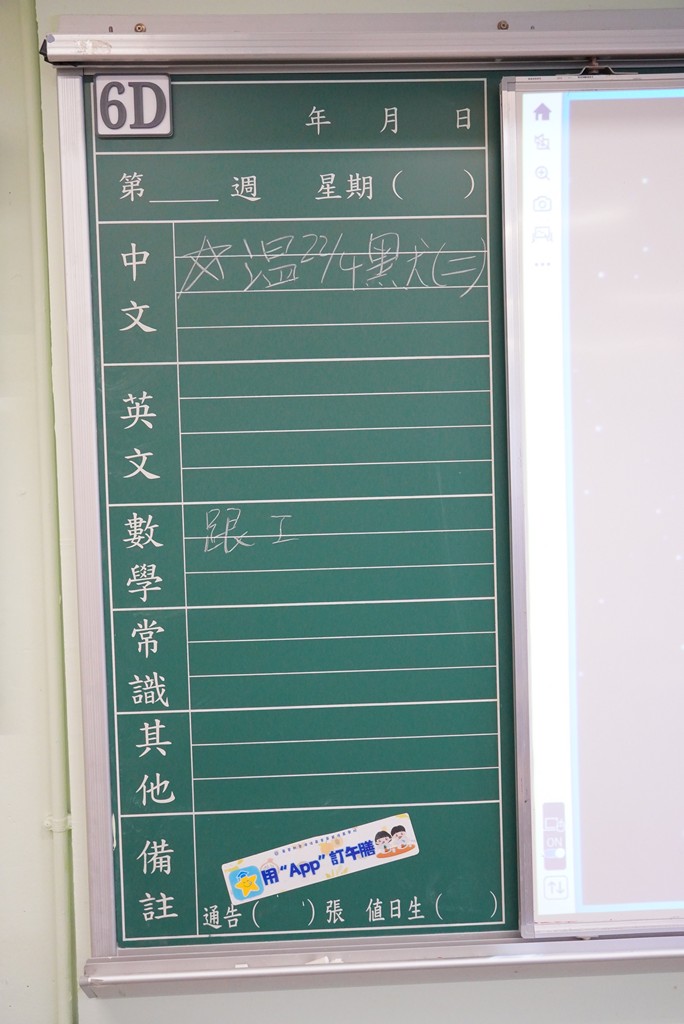 6D
年 月 日
第____週 星期( )
中文
☆温22/4黑犬(三)
英文
數學
跟工
常識
其他
備註
用“App”訂午膳
通告( )張 值日生( )
ON